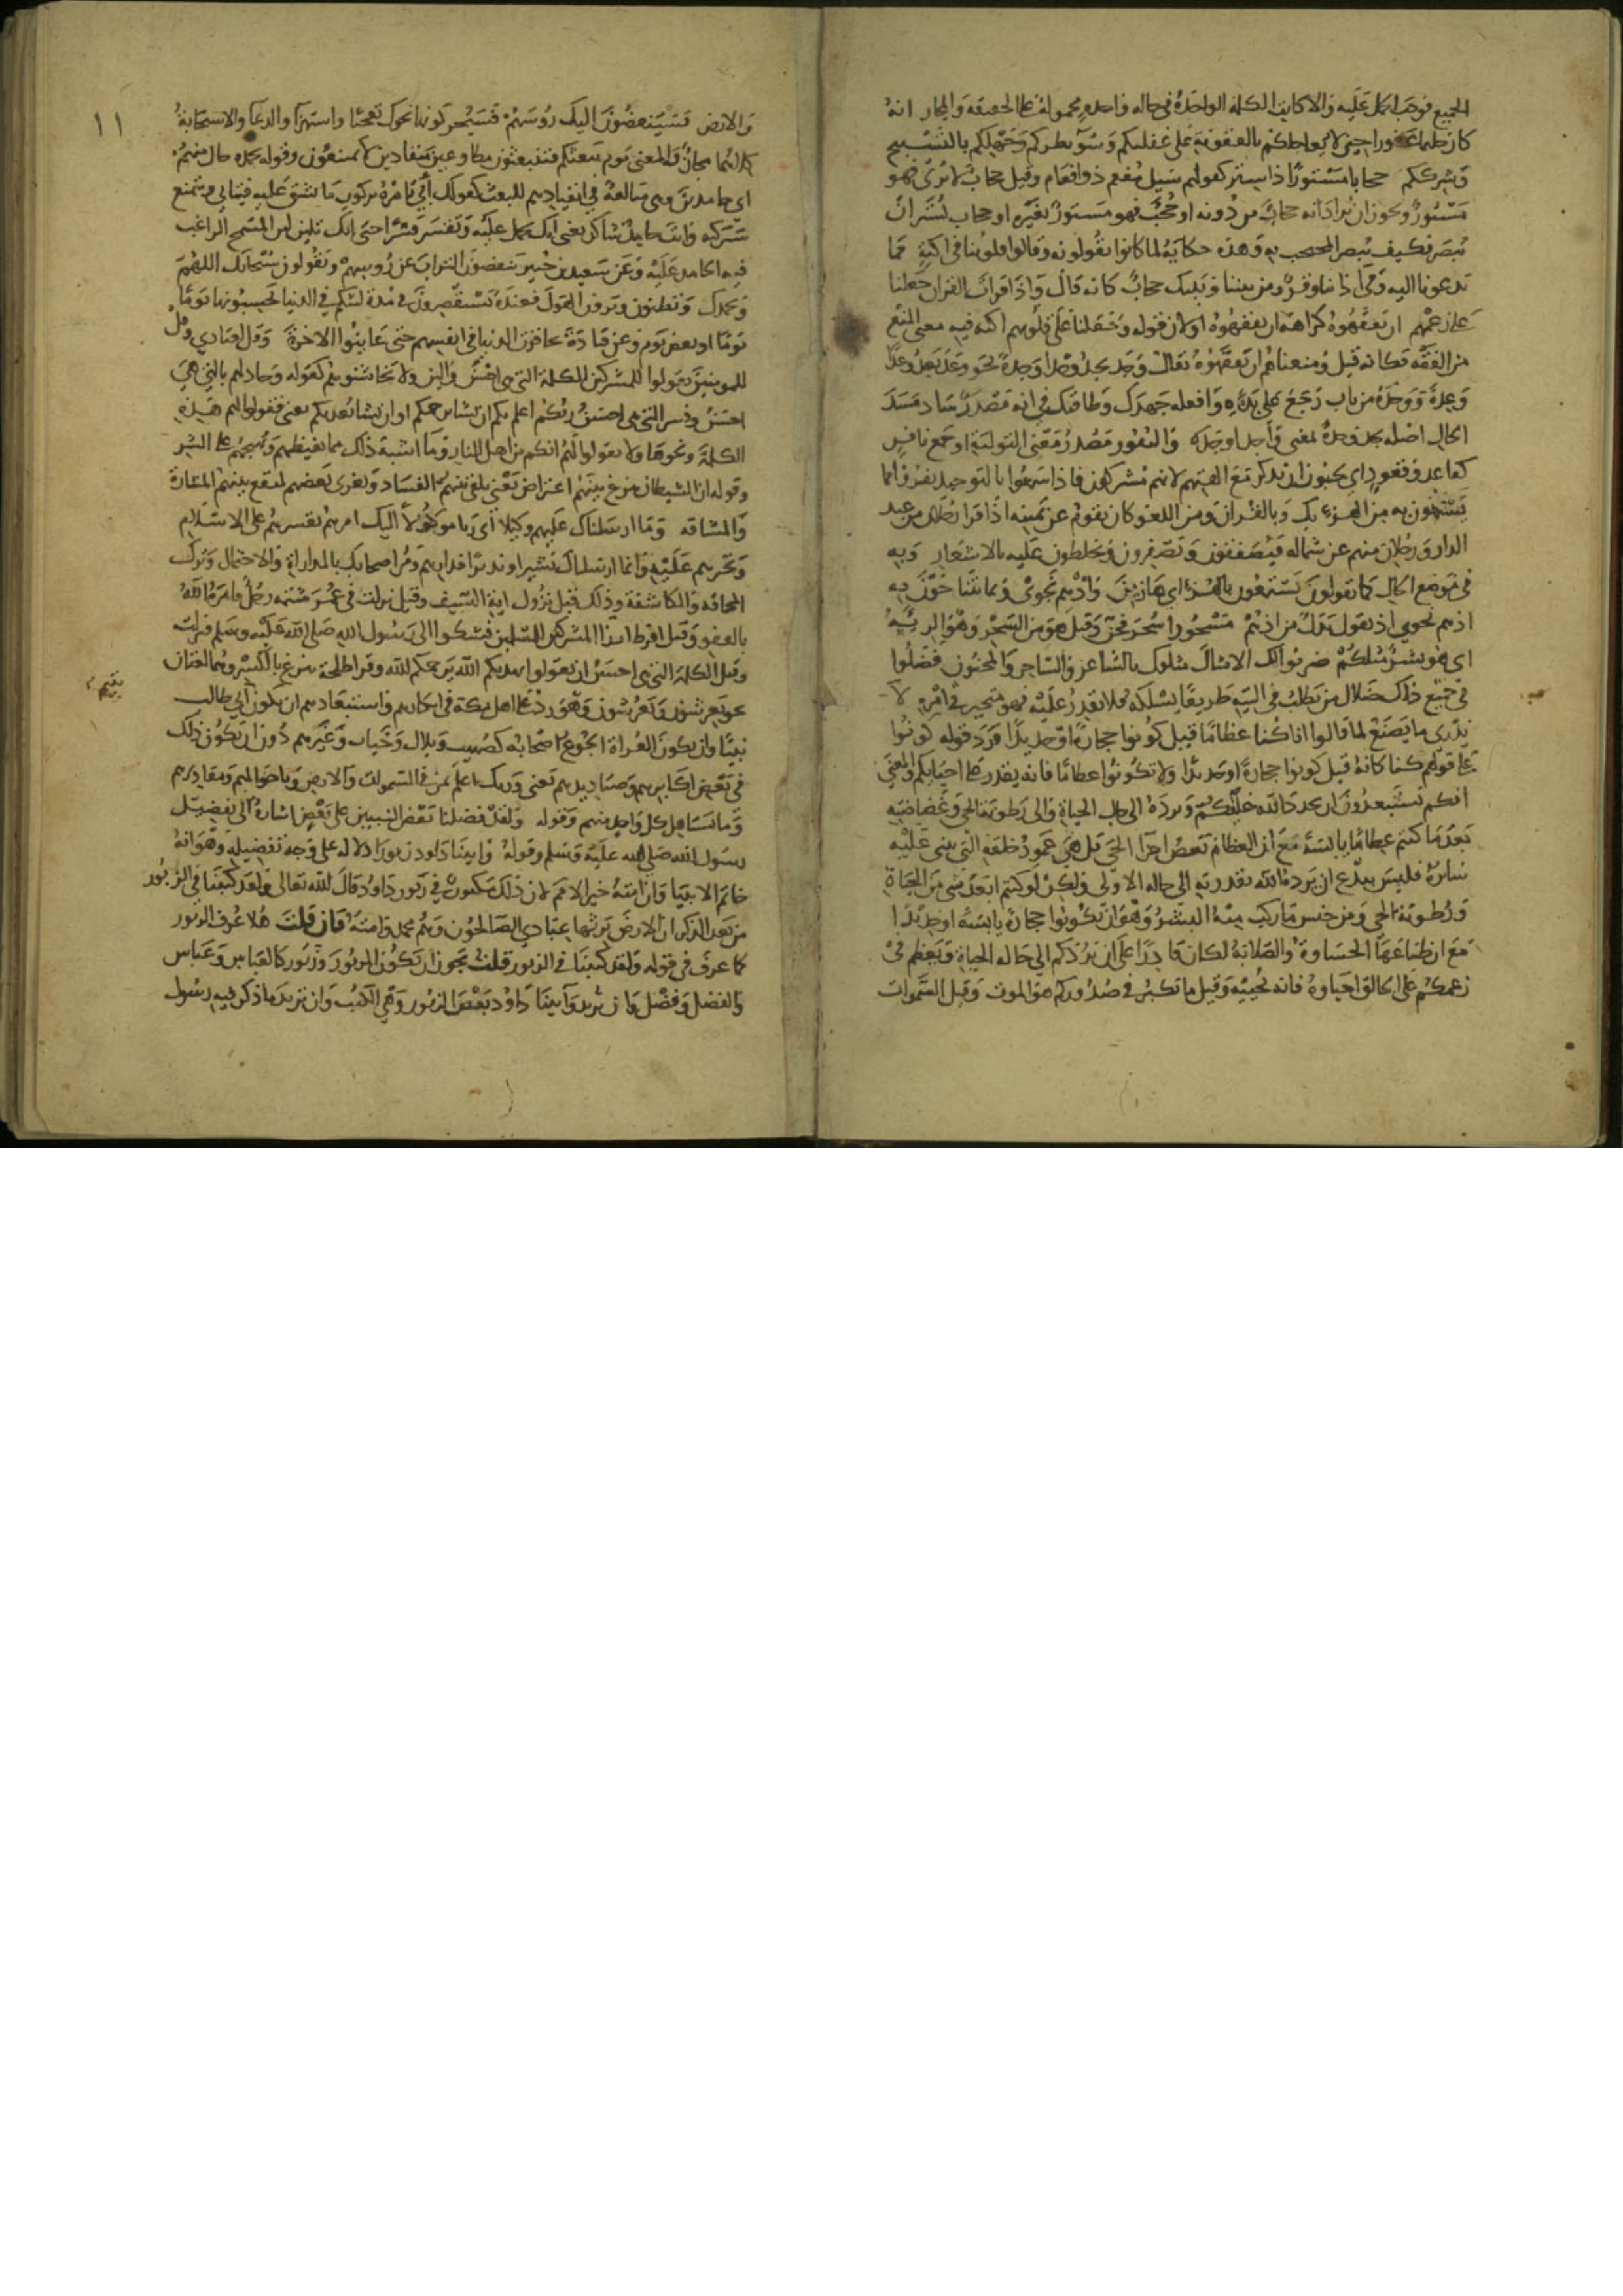 الجميع فوجب الحمل عليه والا كانت الكلمة الواحدة في حالة واحدة محمولة على الحقيقة والمجاز انه
كان حليما غفورا حين لا يعاجلكم بالعقوبة على غفلتكم وسوء نظركم وجهلكم بالتسبيح
وشرككم حجابا مستورا ذا ستر كقولهم سيل مفعم ذو افعام وقيل حجاب لا يرى فهو
مستور ويجوز ان يراد انه حجاب من دونه او حجب فهو مستور بغيره او حجاب يستر ان
يبصر فكيف يبصر المحتجب به وهذه حكاية لما كانوا يقولونه وقالوا قلوبنا في اكنة مما
تدعونا اليه وفي اذاننا وقر ومن بيننا وبينك حجاب كانه قال واذا قرات القران جعلنا
على زعمهم ان يفقهوه كراهة ان يفقهوه او لان قوله وجعلنا على قلوبهم اكنة فيه معنى المنع
من الفقه فكانه قيل ومنعناهم ان يفقهوه يقال وحد يحد وحدا وحدة نحو وعد يعد وعدا
وعدة ووحده من باب رجع على بدئه وافعله جهدك وطاقتك في انه مصدر ساد مسد
الحال اصله يحد وحده بمعنى واحدا وحده والنفور مصدر بمعنى التولية او جمع نافر
كقاعد وقعود اي يحبون ان تذكر معه الهتهم لانهم مشركون فاذا سمعوا بالتوحيد نفروا بما
يستمعون به من الهزء بك وبالقران ومن اللغو كان يقوم عن يمينه اذا قرا رجلان من عبد
الدار ورجلان منهم عن شماله فيصفقون ويصفرون ويخلطون عليه بالاشعار وبه
في موضع الحال كما تقول يستمعون بالهزء اي هازئين واذ هم نجوى وبما يتناجون به
اذ هم نجوى اذ يقول بدل من اذ هم مسحورا سحر فجن وقيل هو من السحر وهو الرئة
اي هو بشر مثلكم ضربوا لك الامثال مثلوك بالشاعر والساحر والمجنون فضلوا
في جميع ذلك ضلال من يطلب في التيه طريقا يسلكه فلا يقدر عليه فهو متحير في امره لا
يدري ما يصنع لما قالوا اذا كنا عظاما قيل كونوا حجارة او حديدا فرد قوله كونوا
على قولهم كنا كانه قيل كونوا حجارة او حديدا ولا تكونوا عظاما فانه يقدر على احيائكم والمعنى
انكم تستبعدون ان يجدد الله خلقكم ويرده الى حال الحياة والى رطوبة الحي وغضاضته
بعد ما كنتم عظاما يابسة مع ان العظام بعض اجزا الحي بل هي عمود خلقه الذي يبنى عليه
سائره فليس ببدع ان يردها الله بقدرته الى حاله الاولى ولكن لو كنتم ابعد شي من الحياة
ورطوبة الحي ومن جنس ما ركب منه البشر وهو ان تكونوا حجارة يابسة او حديدا
مع ان طباعها الجساوة والصلابة لكان قادرا على ان يردكم الى حالة الحياة ويعظم في
زعمكم على الخالق احياوه فانه يحييه وقيل ما يكبر في صدوركم هو الموت وقيل السموات
١١
والارض فسينغضون اليك رووسهم فسيحركونها نحوك تعجبا واستهزا والدعا والاستجابة
كلاهما مجاز والمعنى يوم يبعثكم فتنبعثون مطاوعين منقادين لا تمتنعون وقوله بحمده حال منهم
اي حامدين وهي مبالغة في انقيادهم للبعث كقولك لمن تامره بركوب ما يشق عليه فيتابى ويتمنع
ستركبه وانت حامد شاكر يعني انك تحمل عليه وتقسر قسرا حتى انك تلين لين المسمح الراغب
فيه الحامد عليه وعن سعيد بن جبير ينفضون التراب عن رووسهم ويقولون سبحانك اللهم
وبحمدك وتظنون وترون الهول فعنده تستقصرون مدة لبثكم في الدنيا تحسبونها يوما
يوما او بعض يوم وعن قتادة تحاقرت الدنيا في انفسهم حين عاينوا الاخرة وقل لعبادي وقل
للمومنين يقولوا للمشركين الكلمة التي هي احسن والين ولا يخاشنوهم كقوله وجادلهم بالتي هي
احسن وفسر التي هي احسن ربكم اعلم بكم ان يشا يرحمكم او ان يشا يعذبكم يعني قولوا لهم هذه
الكلمة ونحوها ولا يقولوا لهم انكم من اهل النار وما اشبه ذلك مما يغيظهم ويهيجهم على الشر
وقوله ان الشيطان ينزغ بينهم اعتراض يعني يلقي بينهم الفساد ويغري بعضهم ليقع بينهم المشارة
والمشاقة وما ارسلناك عليهم وكيلا اي ربا موكولا اليك امرهم تقسرهم على الاسلام
وتجبرهم عليه وانما ارسلناك بشيرا ونذيرا فدارهم ومر اصحابك بالمداراة والاحتمال وترك
المحاقة والمكاشفة وذلك قبل نزول اية السيف وقيل نزلت في عمر شتمه رجل فامره الله
بالعفو وقيل افرط ايذا المشركين للمسلمين فشكوا الى رسول الله صلى الله عليه وسلم فنزلت
وقيل الكلمة التي هي احسن ان يقولوا يهديكم الله يرحمكم الله وقرا طلحة ينزغ بالكسر وهما لغتان
نحو يعرشون ويعرشون وهو رد على اهل مكة في انكارهم واستبعادهم ان يكون يتيم ابي طالب
نبيا وان يكون العراة الجوع اصحابه كصهيب وبلال وخباب وغيرهم دون ان يكون ذلك
في بعض اكابرهم وصناديدهم يعني وربك اعلم بمن في السموات والارض وباحوالهم ومقاديرهم
وما يستاهل كل واحد منهم وقوله ولقد فضلنا بعض النبيين على بعض اشارة الى تفضيل
رسول الله صلى الله عليه وسلم وقوله واتينا داود زبورا دلالة على وجه تفضيله وهو انه
خاتم الانبيا وان امته خير الامم لان ذلك مكتوب في زبور داود قال الله تعالى ولقد كتبنا في الزبور
من بعد الذكر ان الارض يرثها عبادي الصالحون وهم محمد وامته فان قلت هلا عرف الزبور
كما عرف في قوله ولقد كتبنا في الزبور قلت يجوز ان يكون الزبور وزبور كالعباس وعباس
والفضل وفضل وان يريد واتينا داود بعض الزبور وهي الكتب وان يريد ما ذكر فيه رسول
يتيم